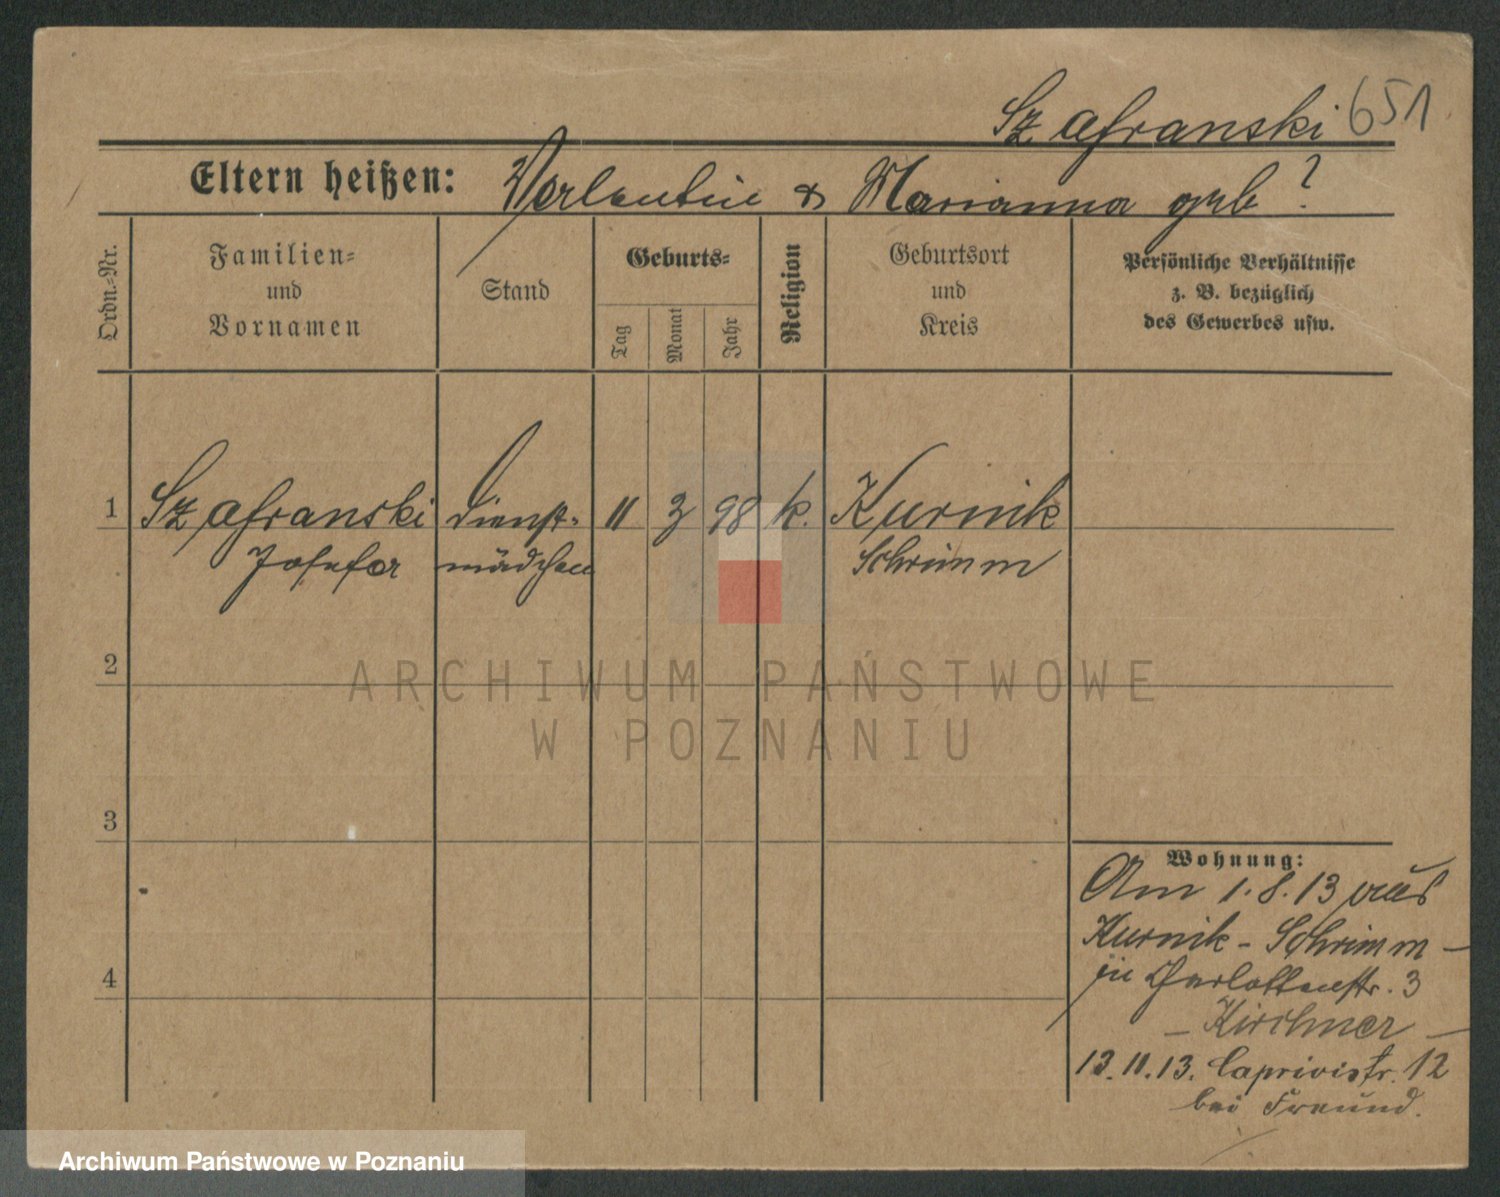 Szafranski 651
Eltern heißen: Valentin & Marianna geb ?
Ordn.-Nr.
Familien-
und
Vornamen
Stand
Geburts-
Tag
Monat
Jahr
Religion
Geburtsort
und
Kreis
Persönliche Verhältnisse
z. B. bezüglich
des Gewerbes usw.
1 Szafranski Dienst- 11 3 98 k. Kurnik
Josefa mädchen Schrimm
2
3
4
ARCHIWUM PAŃSTWOWE
W POZNANIU
Wohnung:
Am 1.8.13 aus
Kurnik - Schrimm -
in Charlottenstr. 3
- Kirchner -
13.11.13. Caprivistr. 12
bei Freund.
Archiwum Państwowe w Poznaniu